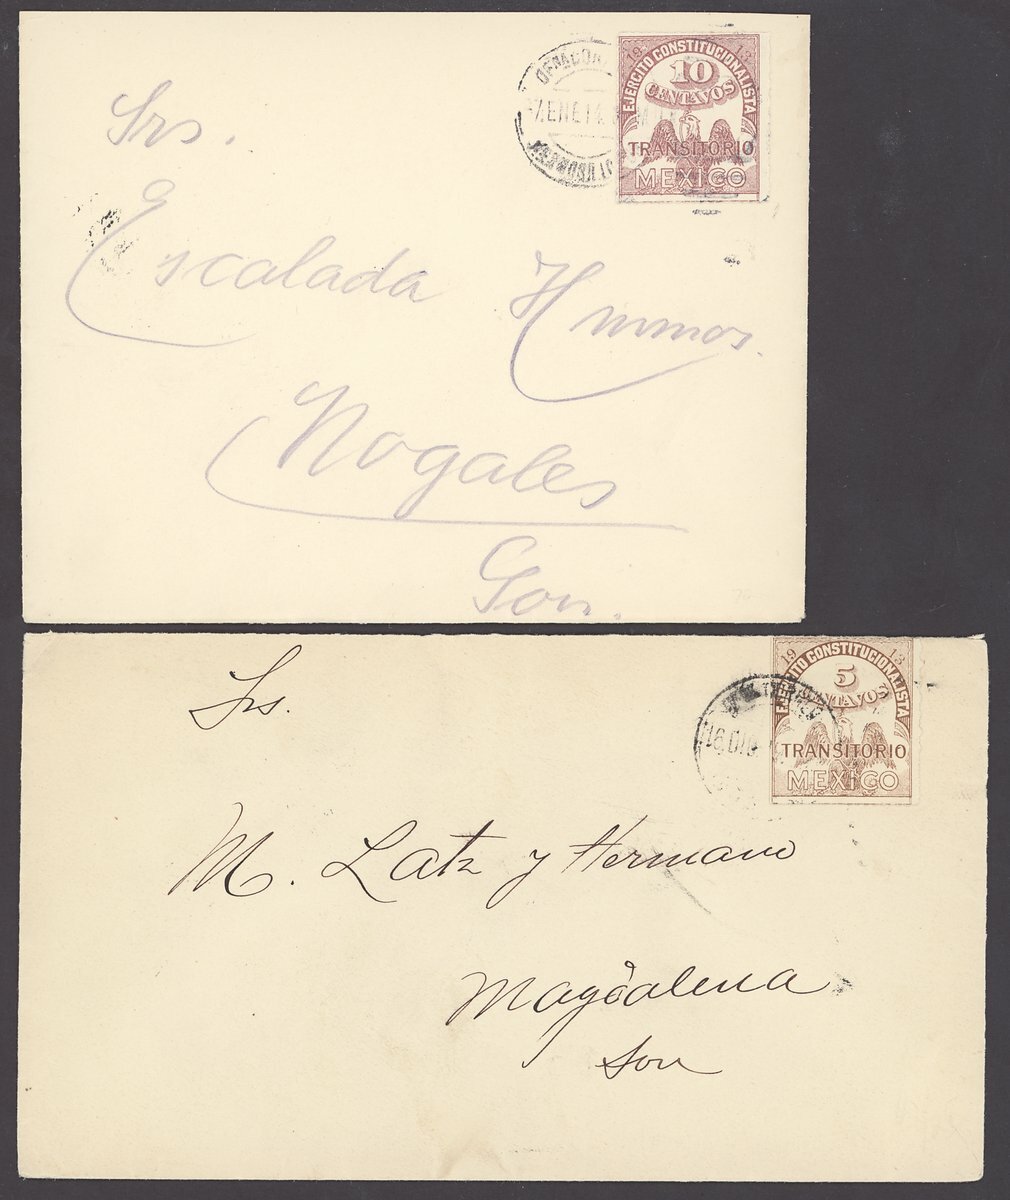 Srs.
Escalada Hmnos.
Nogales
Son.
19 13
EJERCITO CONSTITUCIONALISTA
10
CENTAVOS
TRANSITORIO
MEXICO
7.ENE.14
Srs.
M. Latz y Hermano
Magdalena
Son
19 13
EJERCITO CONSTITUCIONALISTA
5
CENTAVOS
TRANSITORIO
MEXICO
16 DIC